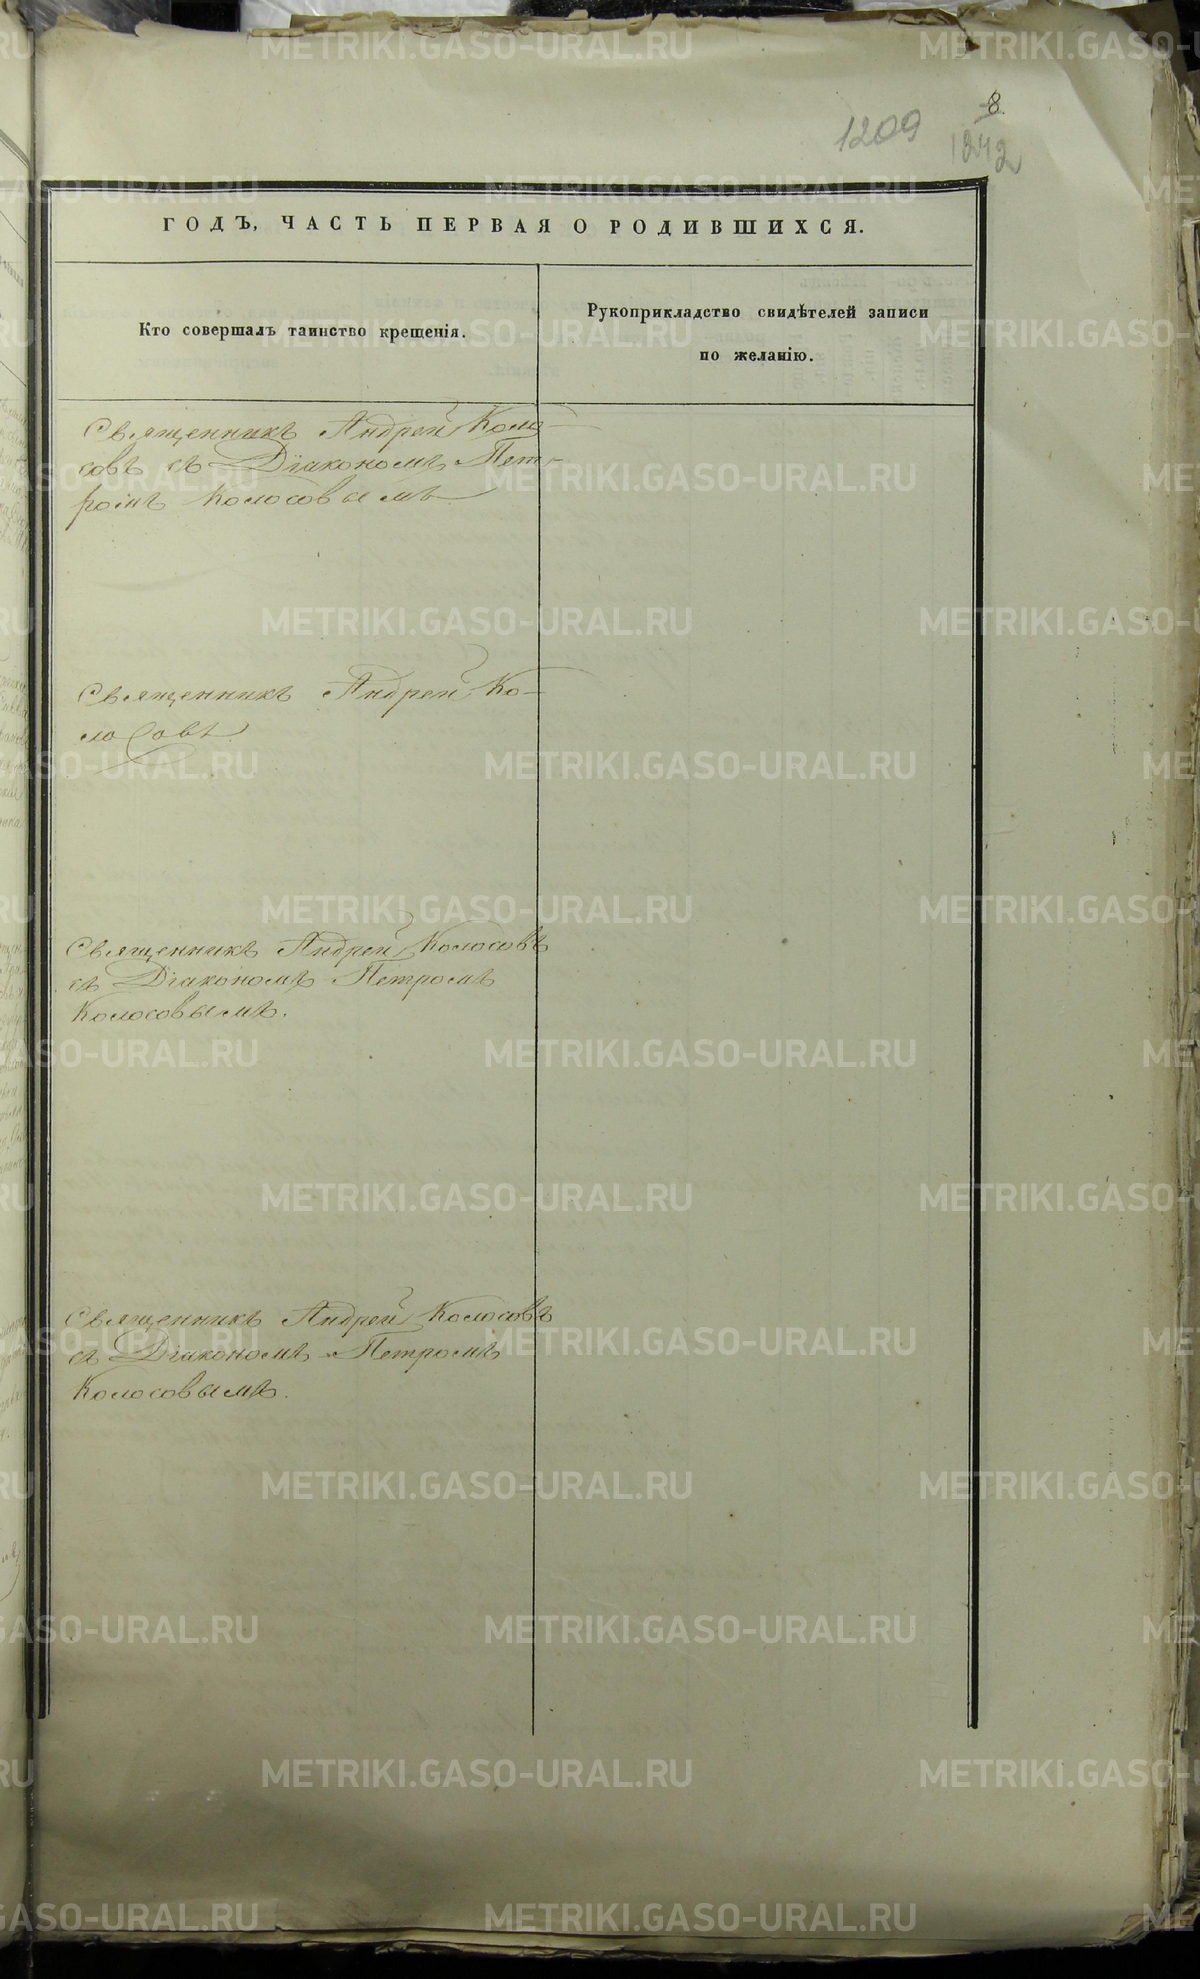 8.
1209
1242
ГОДЪ, ЧАСТЬ ПЕРВАЯ О РОДИВШИХСЯ.
Кто совершалъ таинство крещенія.
Рукоприкладство свидѣтелей записи
по желанію.
Священникъ Андрей Коло-
совъ съ Діакономъ Пет-
ромъ Колосовымъ
Священникъ Андрей Ко-
лосовъ.
Священникъ Андрей Колосовъ
съ Діакономъ Петромъ
Колосовымъ.
Священникъ Андрей Колосовъ
съ Діакономъ Петромъ
Колосовымъ.
METRIKI.GASO-URAL.RU